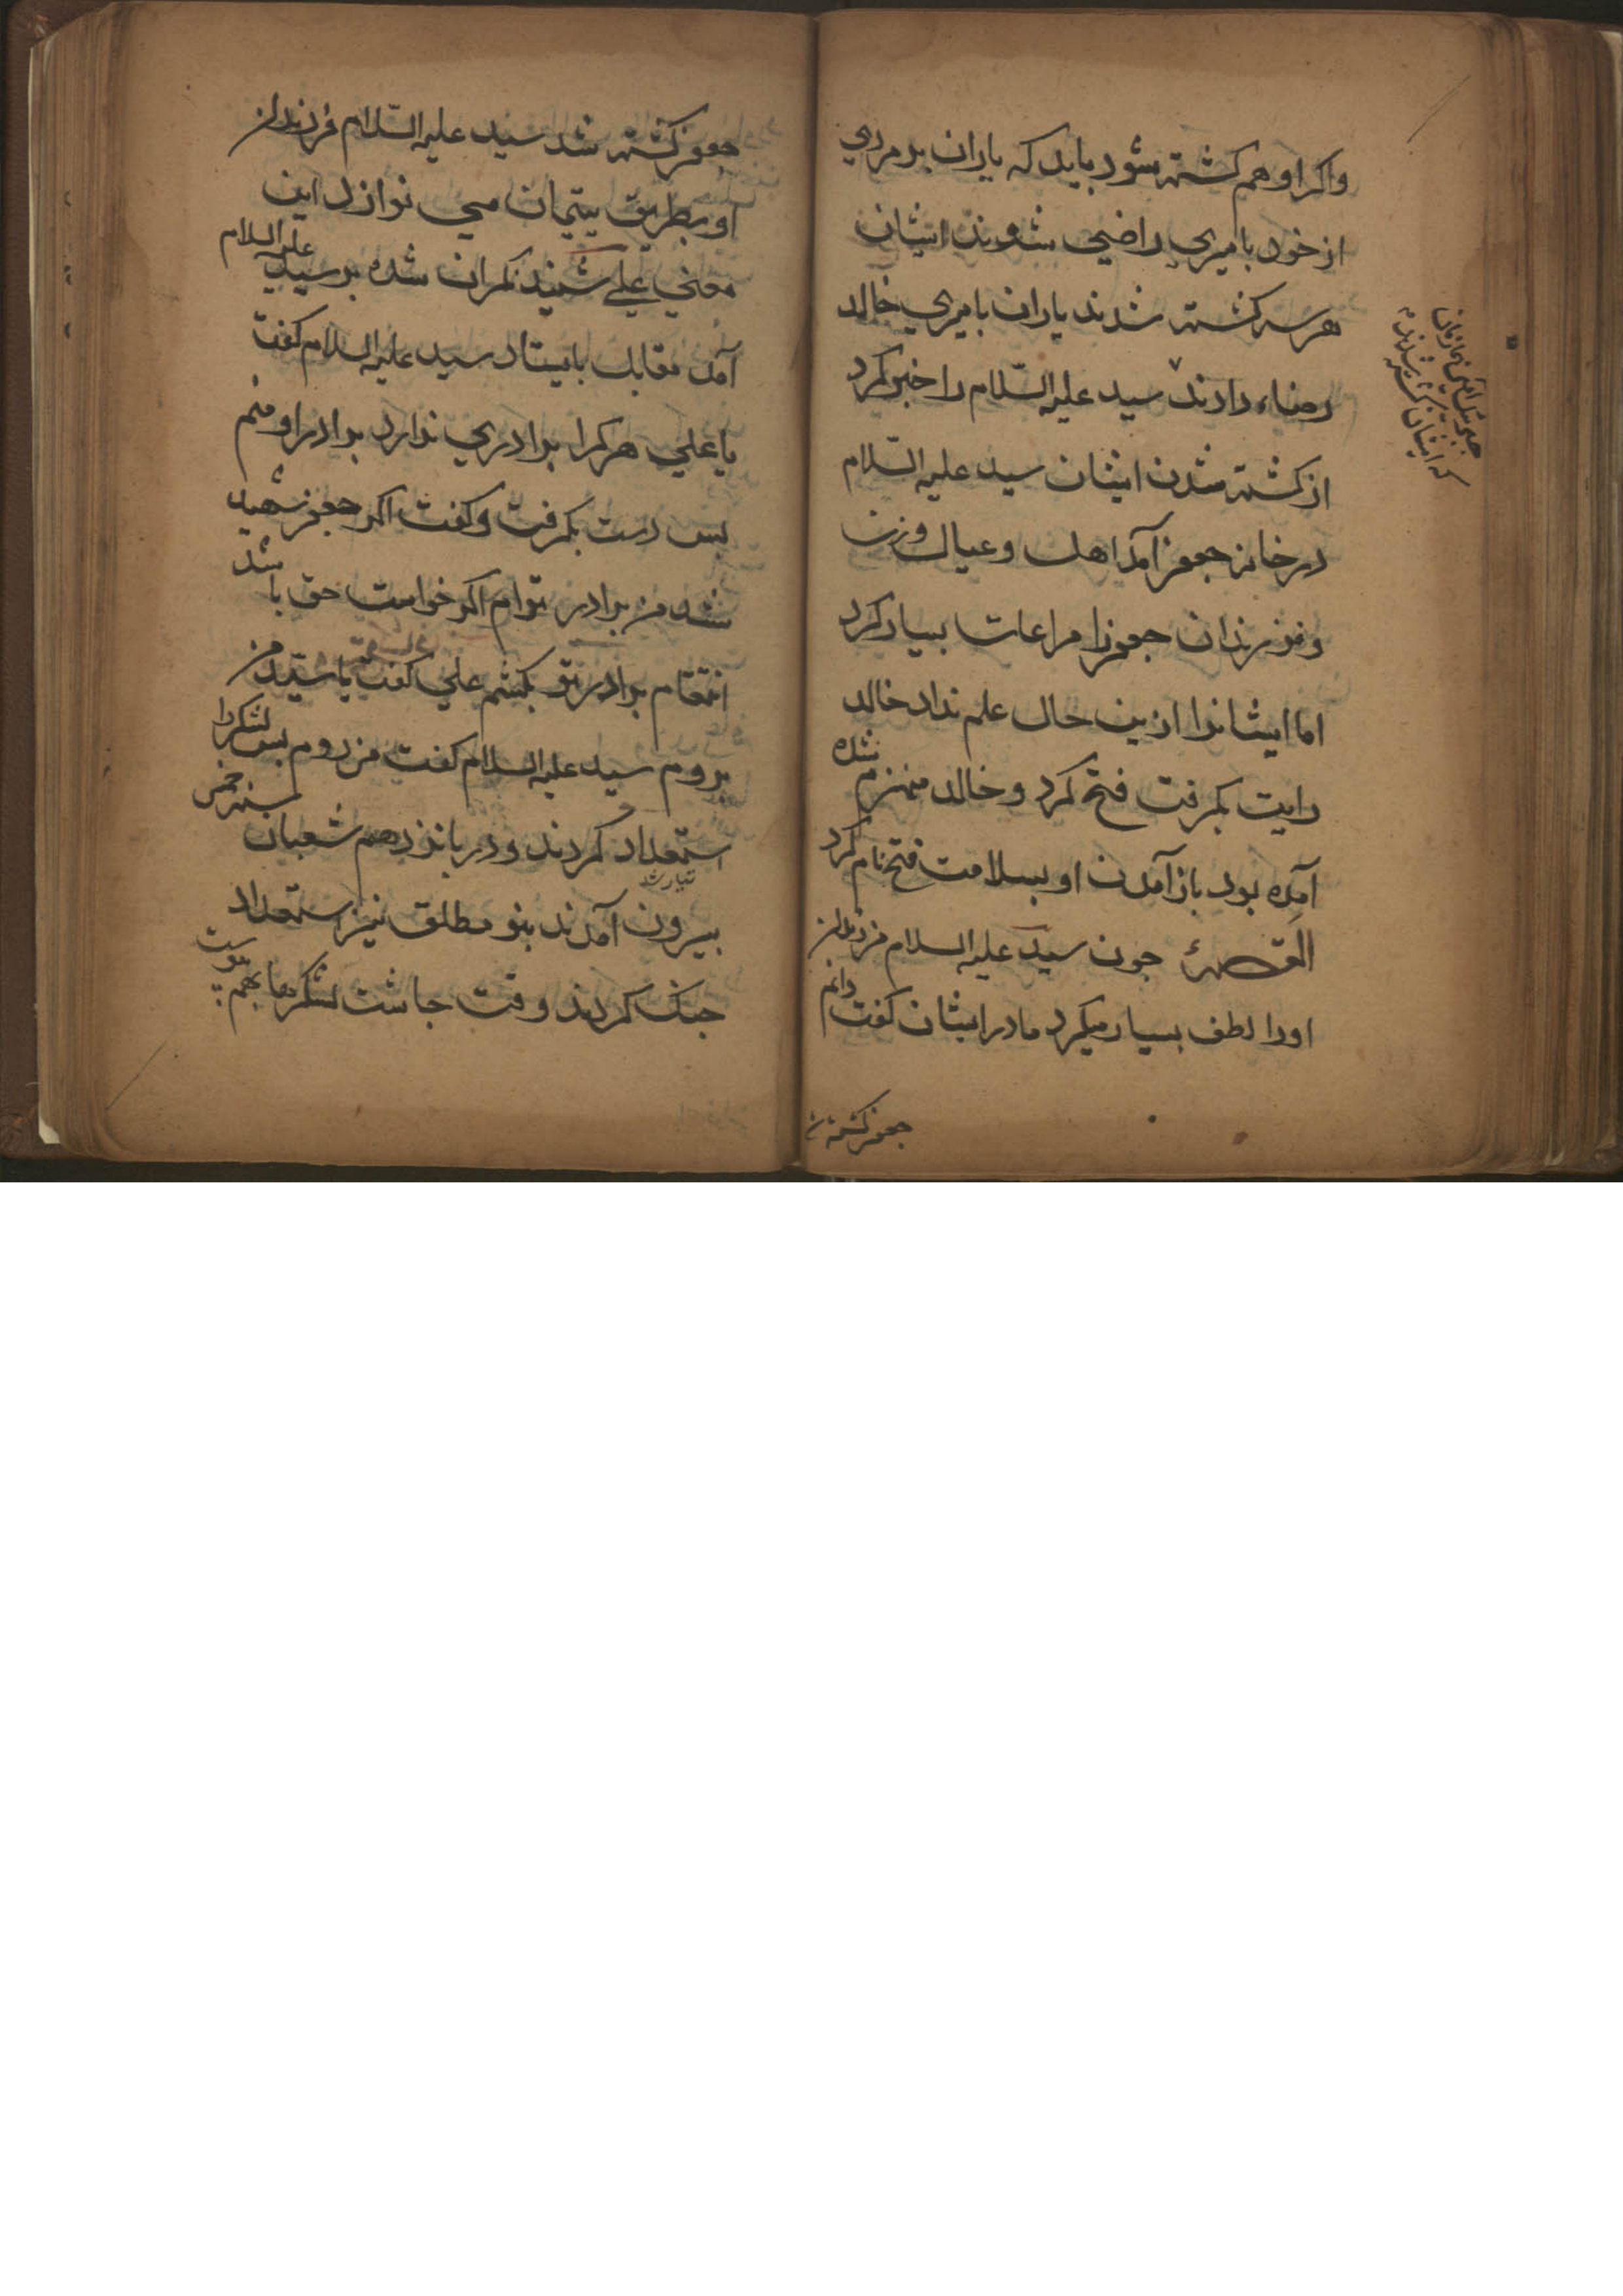 واکر او هم کشته شود باید که یاران بر مردی
از خود بامیری راضی شوند ایشان
هر سه کشته شدند یاران بامیری خالد
رضاء دادند سید علیه السّلام را خبر کرد
از کشته شدن ایشان سید علیه السّلام
در خانه جعفر آمد اهل و عیال و زن
و فرزندان جعفر را مراعات بسیار کرد
اما ایشانرا ازین حال علم نداد خالد
رایت بکرفت فتح کرد و خالد منهزم شده
آمده بود باز آمدن او بسلامت فتح نام کرد
القصهٔ جون سید علیه السلام فرزندان
اورا لطف بسیار میکرد مادر ایشان کفت دانم
جعفر کشته
جبرئیل آمد
که ایشان کشته شدند
جعفر کشته شد سید علیه السّلام فرزندان
او بطریق یتیمان می نوازد این
معنی علی شنید نکران شده بر سید علیه السلام
آمد مقابل بایستاد سید علیه السلام کفت
یا علی هر کرا برادری ندارد برادر او منم
بس دست بکرفت و کفت اکر جعفر شهید
شد من برادر توام اکر خواست حق باشد
انتقام برادر تو بکشم علی کفت یا سید من
بروم سید علیه السلام کفت من روم بس لشکررا
استعداد کردند و در بانزدهم شعبان
بیرون آمدند بنو مطلق نیز استعداد
جنک کردند وقت جاشت لشکرها بهم